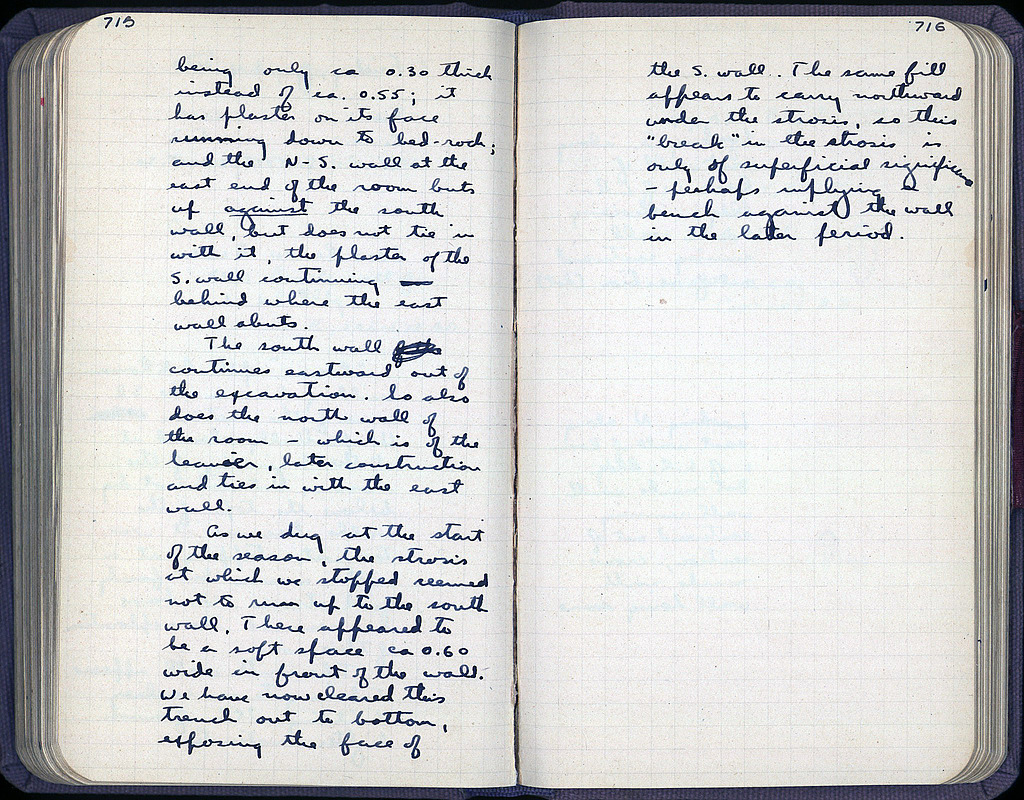 715
being only ca 0.30 thick
instead of ca. 0.55; it
has plaster on its face
running down to bed-rock;
and the N-S. wall at the
east end of the room buts
up against the south
wall, but does not tie in
with it, the plaster of the
S. wall continuing
behind where the east
wall abuts.
The south wall
continues eastward out of
the excavation. So also
does the north wall of
the room - which is of the
heavier, later construction
and ties in with the east
wall.
As we dug at the start
of the season, the strosis
at which we stopped seemed
not to run up to the south
wall. There appeared to
be a soft space ca 0.60
wide in front of the wall.
We have now cleared this
trench out to bottom,
exposing the face of
716
the S. wall. The same fill
appears to carry northward
under the strosis, so this
"break" in the strosis is
only of superficial significance
- perhaps implying a
bench against the wall
in the later period.